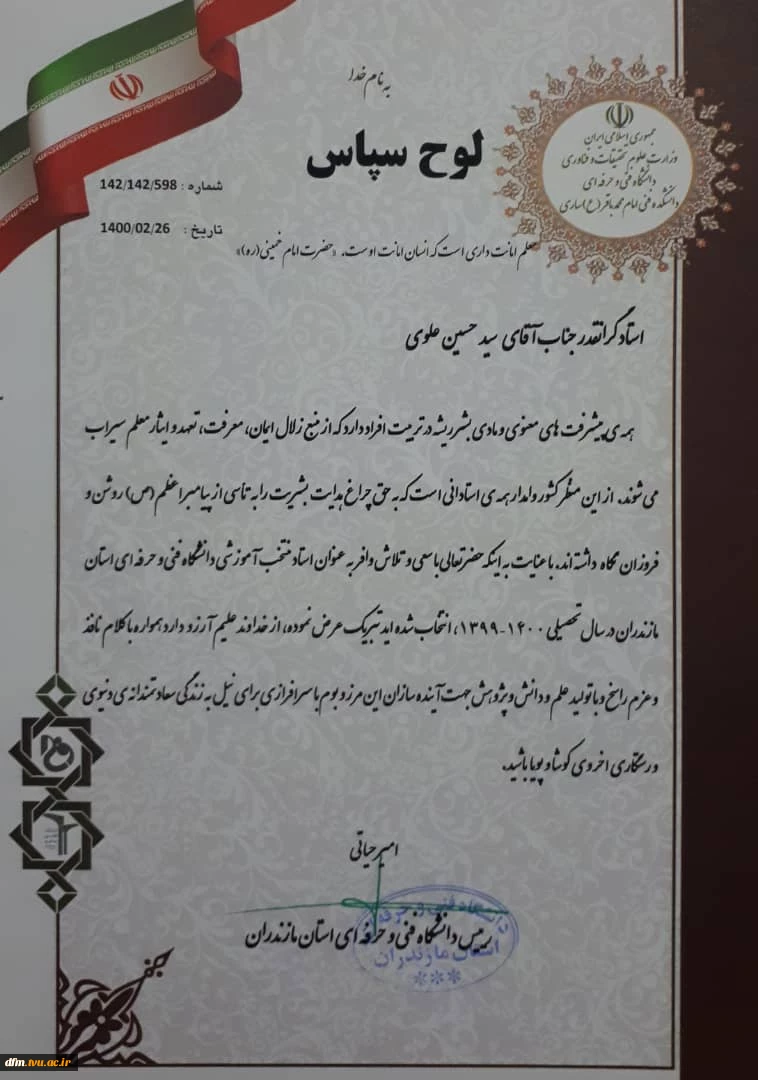 به نام خدا
جمهوری اسلامی ایران
وزارت علوم، تحقیقات و فناوری
دانشگاه فنی و حرفه ای
دانشکده فنی امام محمد باقر (ع) ساری
لوح سپاس
شماره : 142/142/598
تاریخ : 1400/02/26
معلم امانت داری است که انسان امانت اوست. «حضرت امام خمینی(ره)»
استاد گرانقدر جناب آقای سید حسین علوی
همه ی پیشرفت های معنوی و مادی بشر ریشه در تربیت افراد دارد که از منبع زلال ایمان، معرفت، تعهد و ایثار معلم سیراب
می شوند. از این منظر کشور وامدار همه ی استادانی است که به حق چراغ هدایت بشریت را به تاسی از پیامبر اعظم (ص) روشن و
فروزان نگاه داشته اند. با عنایت به اینکه حضرتعالی با سعی و تلاش وافر به عنوان استاد منتخب آموزشی دانشگاه فنی و حرفه ای استان
مازندران در سال تحصیلی ۱۴۰۰-۱۳۹۹، انتخاب شده اید تبریک عرض نموده، از خداوند علیم آرزو دارد همواره با کلام نافذ
و عزم راسخ و با تولید علم و دانش و پژوهش جهت آینده سازان این مرز و بوم با سرافرازی برای نیل به زندگی سعادتمندانه ی دنیوی
و رستگاری اخروی کوشا و پویا باشید.
امیر حیاتی
رییس دانشگاه فنی و حرفه ای استان مازندران
دانشگاه فنی و حرفه ای
استان مازندران
***
dfm.tvu.ac.ir